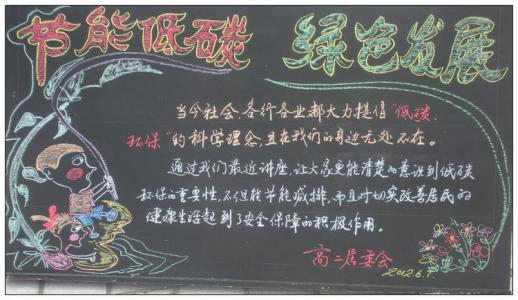 节能低碳 绿色发展
当今社会，各行各业都大力提倡“低碳、
环保”的科学理念，且在我们的身边无处不在。
通过我们最近讲座，让大家更能清楚的意识到低碳
环保的重要性，不但能节能减排，而且对切实改善居民的
健康生活起到了安全保障的积极作用。
高二居委会
2012.6.7